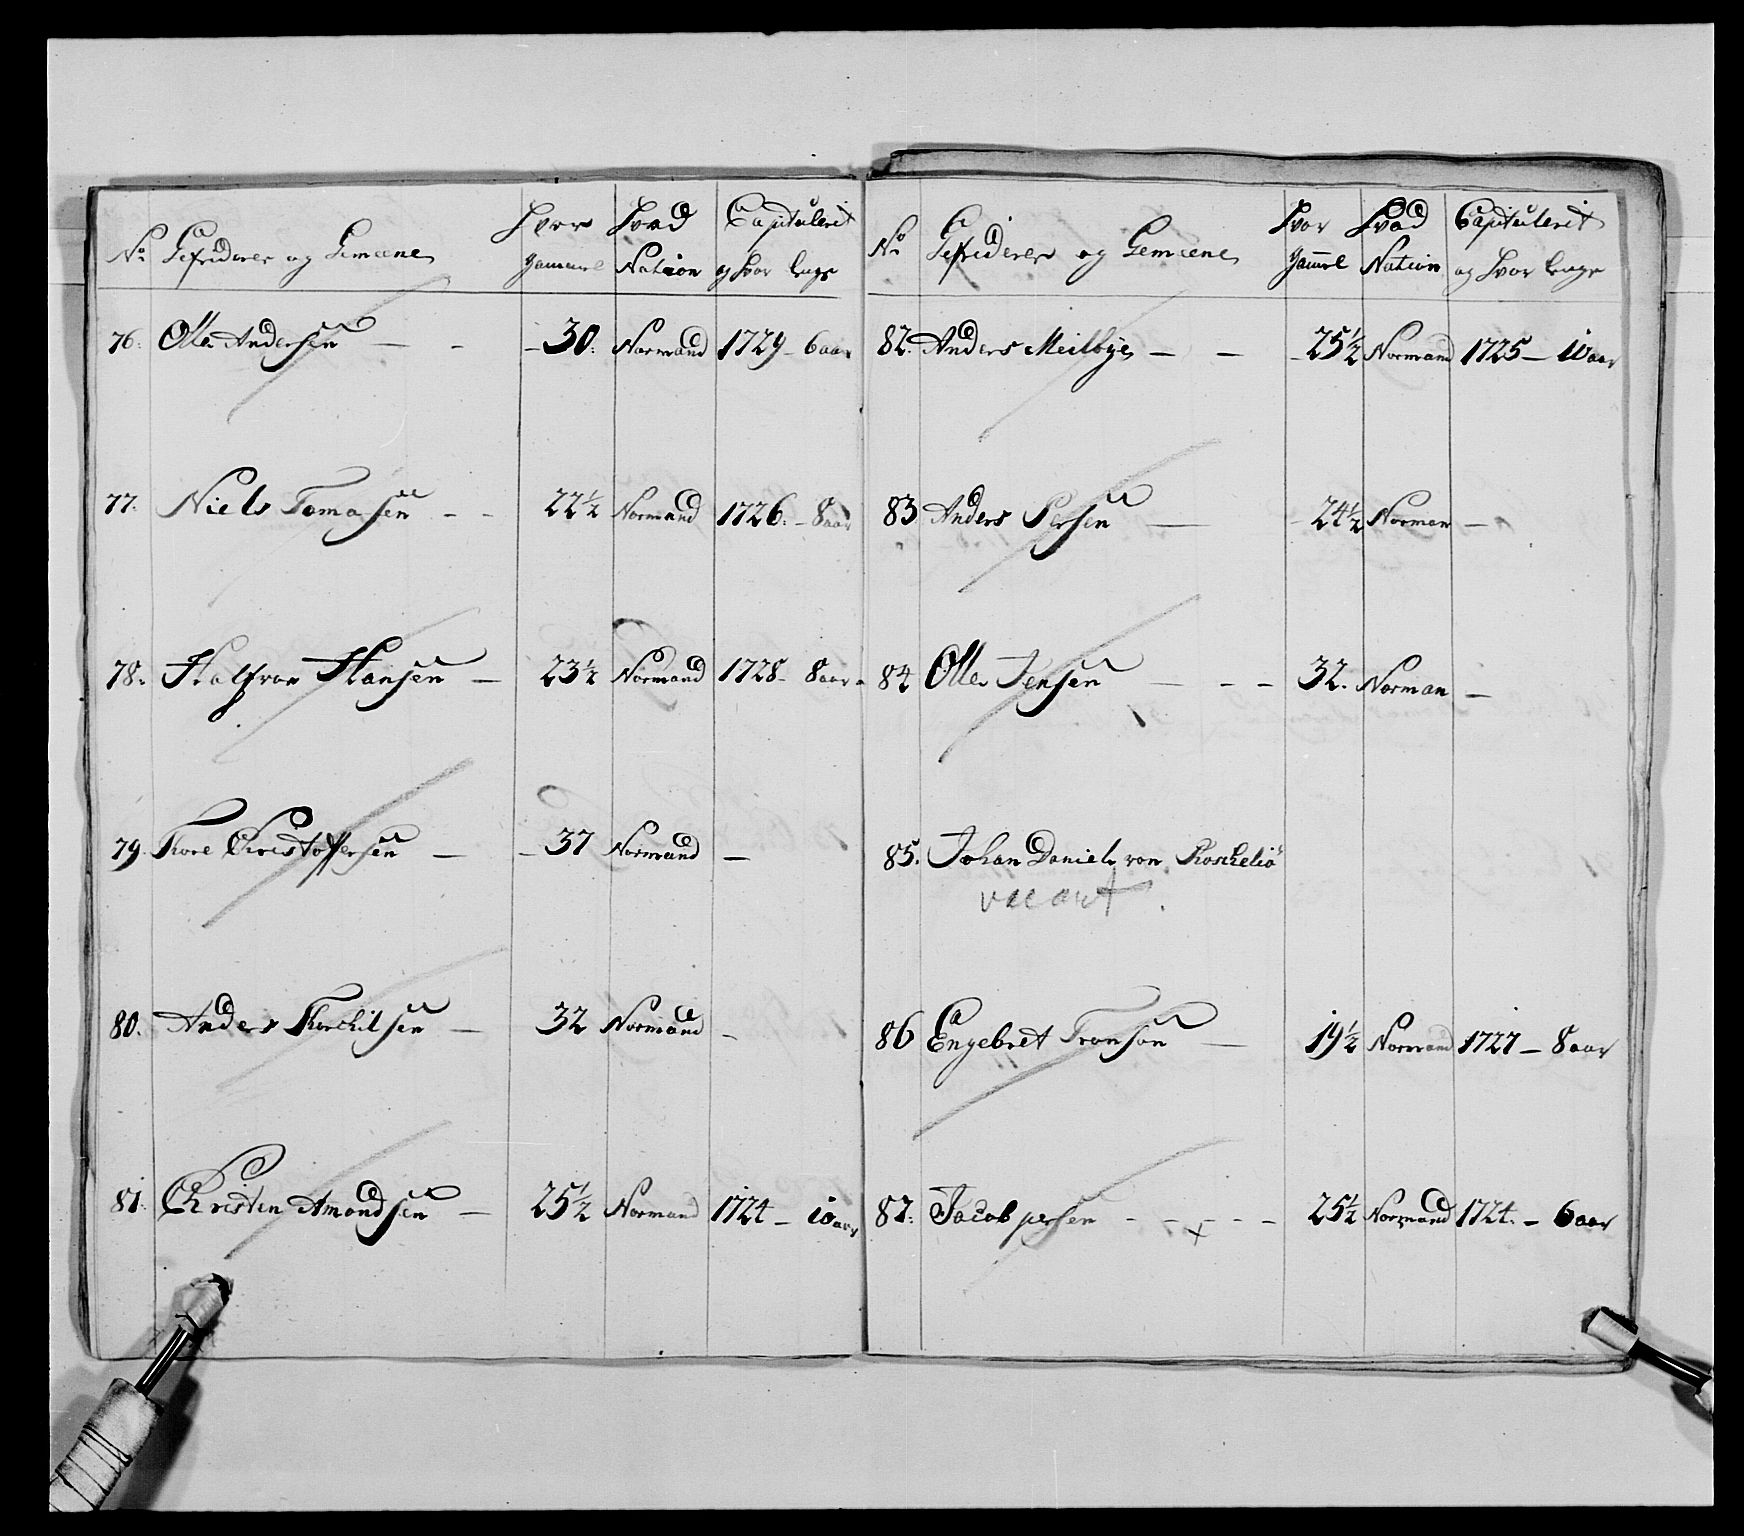 No Gefriderer og Gemeene Hvor gammel Hvad Nation Capituleret og hvor lenge
76. Olle Andersen — - - 30. Normand 1729 - 6 aar
77. Niels Tomasen - - 22½ Normand 1726. - 8 aar
78. Halfvor Hansen — 23½ Normand 1728 - 8 aar -
79. Tore Christoffersen — - 37 Normand —
80. Anders Torchilsen — 32 Normand -
81. Christen Amondsen — 25½ Normand 1724 - 10 aar
No Gefriderer og Gemeene Hvor gammel Hvad Nation Capituleret og hvor lenge
82. Anders Meilbye — - - 25½ Normand 1725 - 10 aar
83 Anders Persen — - 24½ Norman —
84 Olle Jensen — - - 32. Norman —
85. Johan Daniel von
vacant.
86 Engebret Tronson — 19½ Normand 1727 - 8 aar
87. Jacob persen - - - - - 25½ Normand 1724. - 6 aar
x